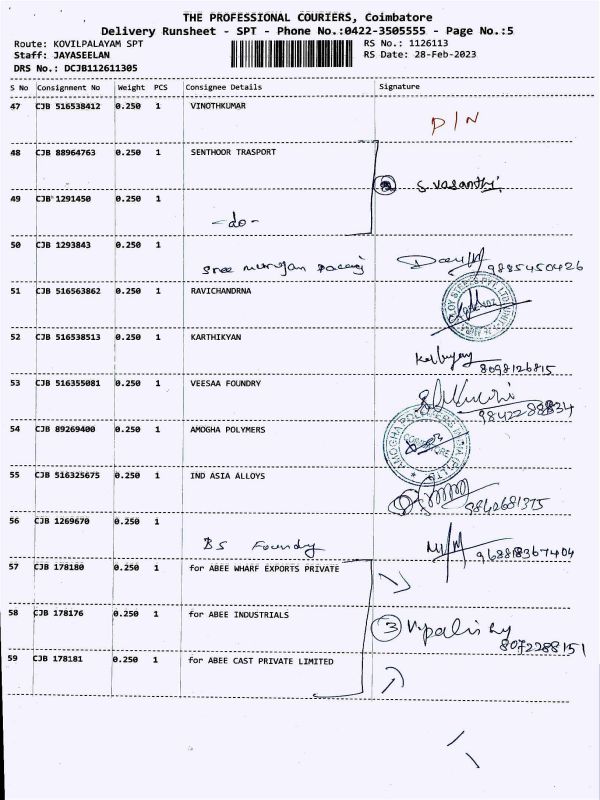 THE PROFESSIONAL COURIERS, Coimbatore
Delivery Runsheet - SPT - Phone No.:0422-3505555 - Page No.:5
Route: KOVILPALAYAM SPT
Staff: JAYASEELAN
DRS No.: DCJB112611305
RS No.: 1126113
RS Date: 28-Feb-2023
S No Consignment No Weight PCS Consignee Details Signature
47 CJB 516538412 0.250 1 VINOTHKUMAR
D/N
48 CJB 88964763 0.250 1 SENTHOOR TRASPORT
S. Vasanthi
49 CJB 1291450 0.250 1
-do-
50 CJB 1293843 0.250 1
Sree murugan
9885450426
51 CJB 516563862 0.250 1 RAVICHANDRNA
52 CJB 516538513 0.250 1 KARTHIKYAN
8098126815
53 CJB 516355081 0.250 1 VEESAA FOUNDRY
54 CJB 89269400 0.250 1 AMOGHA POLYMERS
AMOGHA POLYMERS
55 CJB 516325675 0.250 1 IND ASIA ALLOYS
56 CJB 1269670 0.250 1
BS Foundry
57 CJB 178180 0.250 1 for ABEE WHARF EXPORTS PRIVATE
58 CJB 178176 0.250 1 for ABEE INDUSTRIALS
3
8072288151
59 CJB 178181 0.250 1 for ABEE CAST PRIVATE LIMITED